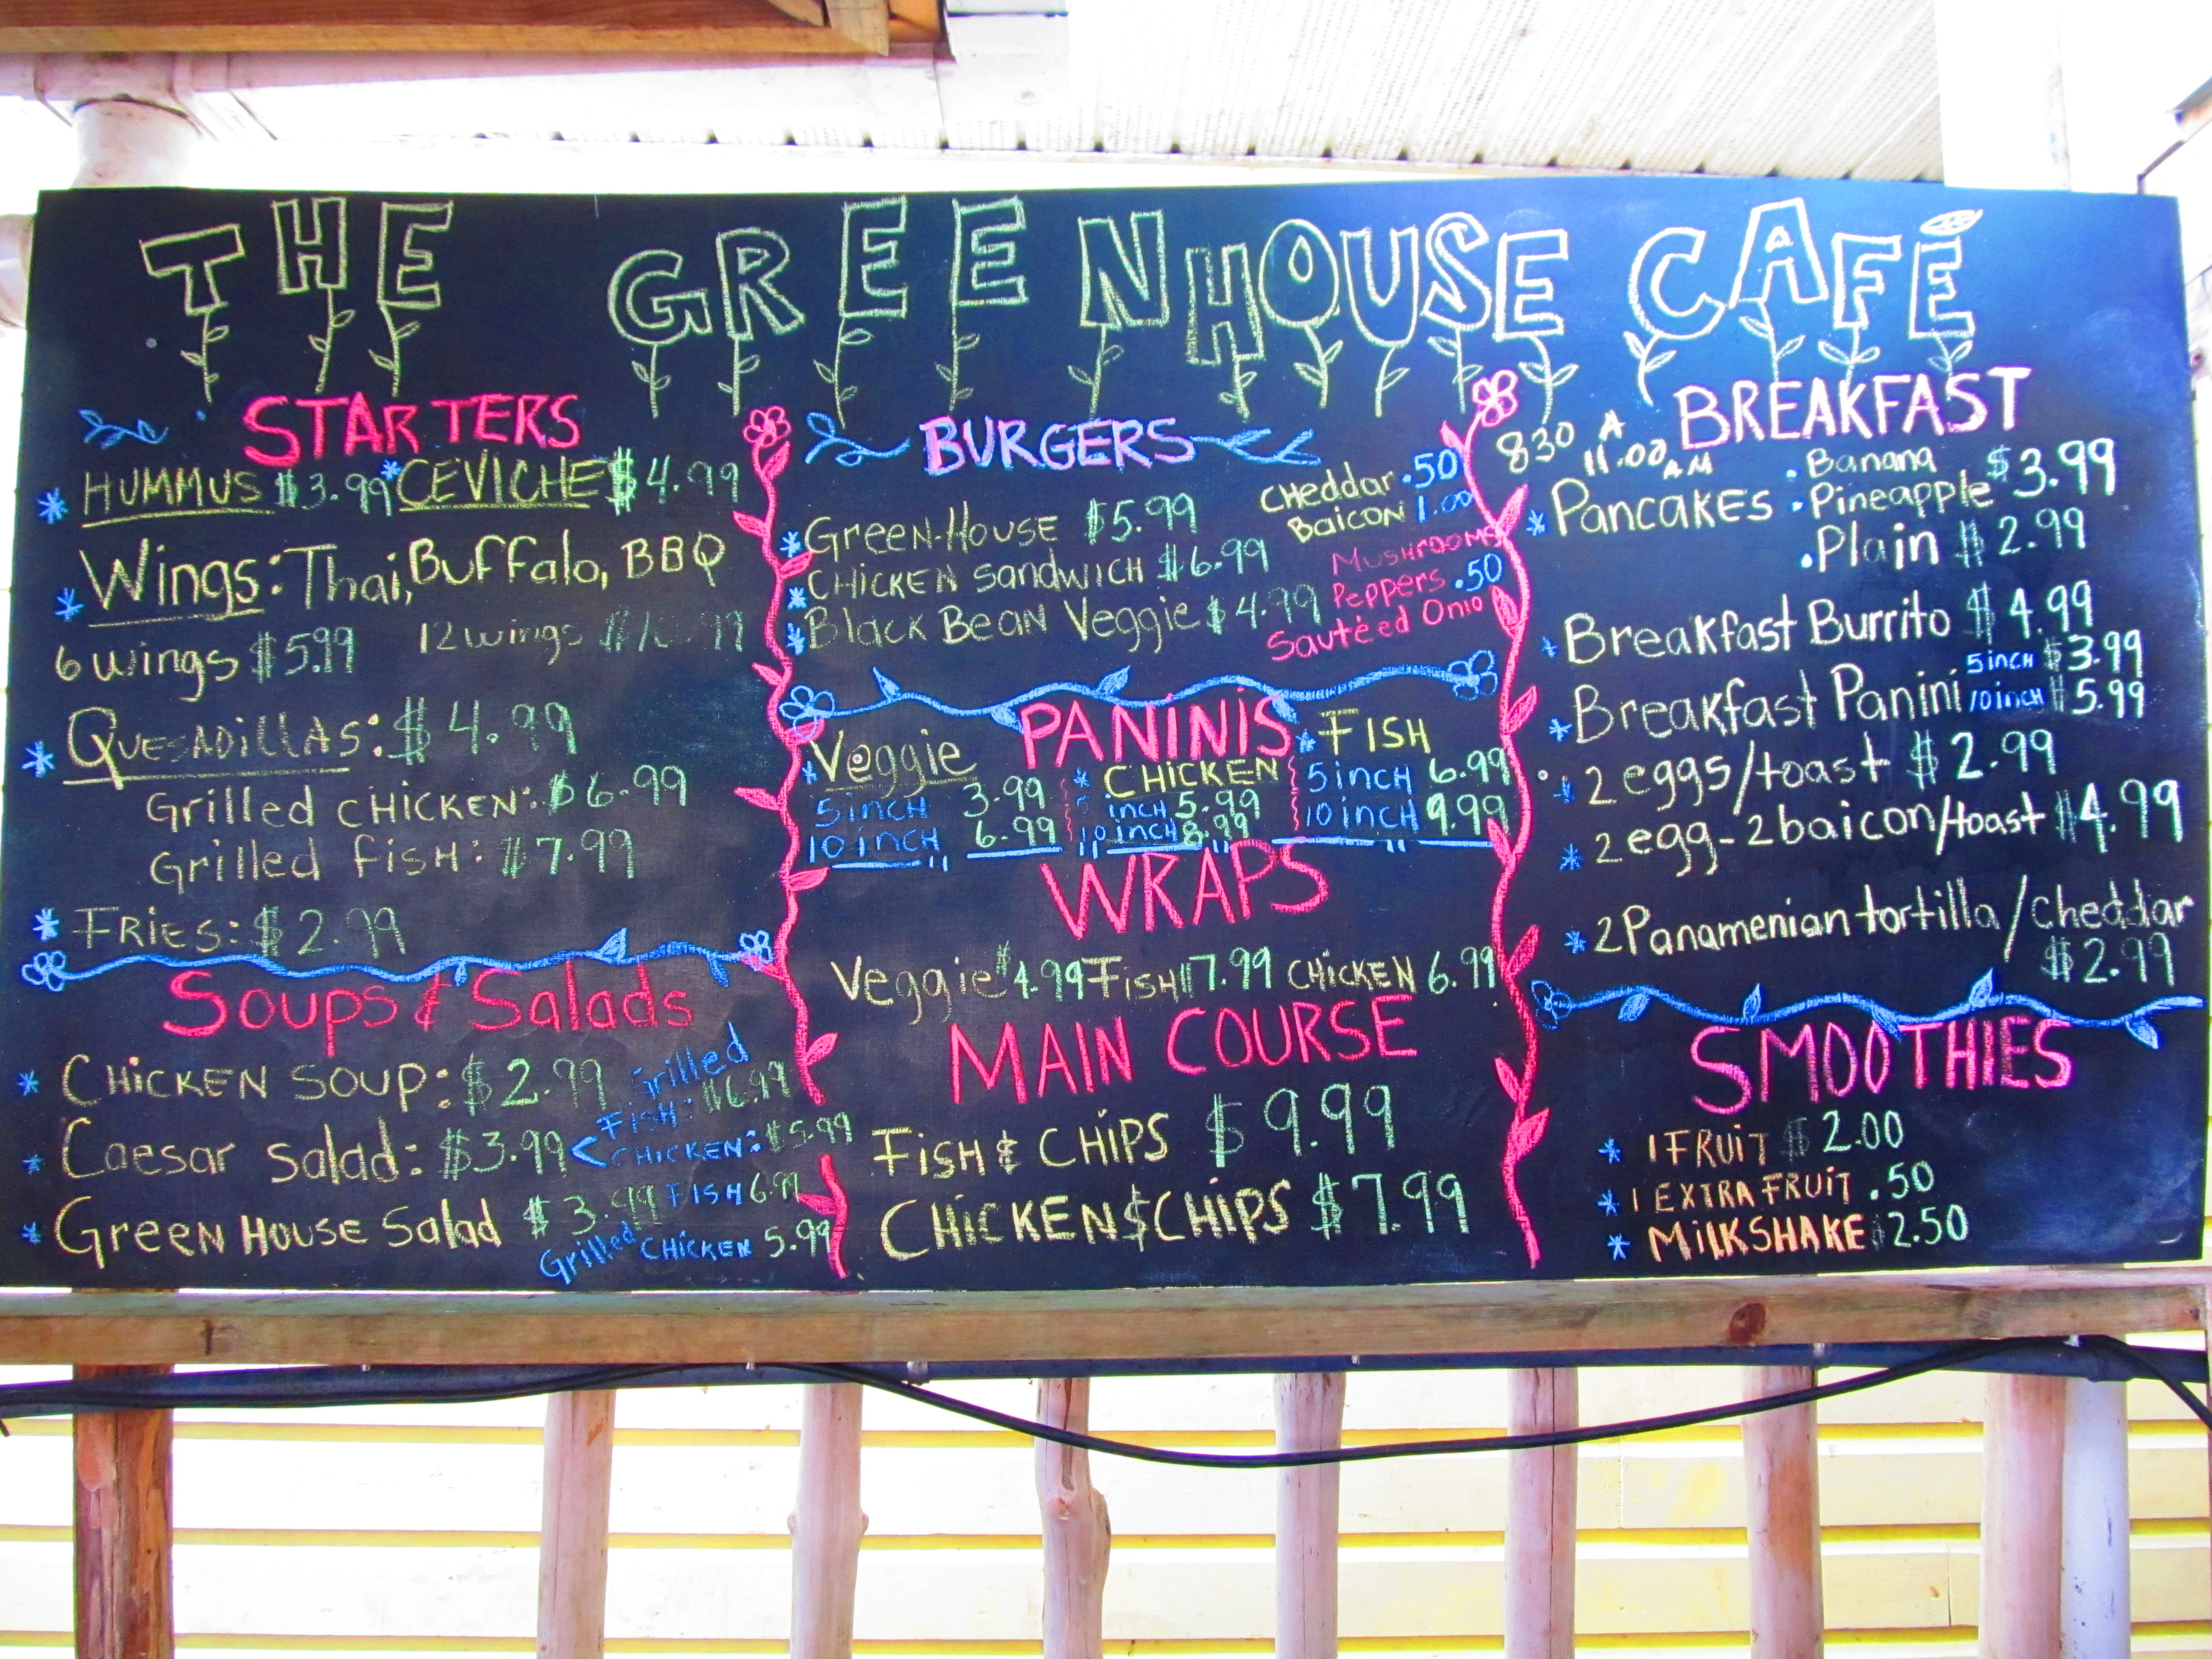 THE GREENHOUSE CAFÉ
STARTERS
* HUMMUS $3.99 * CEVICHE $4.99
* Wings: Thai, Buffalo, BBQ
6 wings $5.99 12 wings $10.99
* QUESADILLAS: $4.99
Grilled CHICKEN: $6.99
Grilled FISH: $7.99
* FRIES: $2.99
Soups & Salads
* CHICKEN SOUP: $2.99
* Caesar Salad: $3.99 < Grilled
FISH: $6.99
CHICKEN: $5.99
* GREEN HOUSE Salad $3.99 FISH 6.99
Grilled CHICKEN 5.99
BURGERS
* GREEN-HOUSE $5.99
* CHICKEN SANDWICH $6.99
* Black Bean Veggie $4.99
CHeddar .50
BAICON 1.00
MUSHROOMS
Peppers .50
Sautéed Onio
PANINIS
* Veggie
5 inch 3.99
10 inch 6.99
* CHICKEN
5 inch 5.99
10 inch 8.99
* FISH
5 inch 6.99
10 inch 9.99
WRAPS
Veggie $4.99 FISH $7.99 CHICKEN 6.99
MAIN COURSE
FISH & CHIPS $9.99
CHICKEN $ CHIPS $7.99
BREAKFAST
830 A
11.00 AM
* PANCAKES • Banana
• Pineapple $3.99
• Plain $2.99
* Breakfast Burrito $4.99
* Breakfast Panini 5 inch $3.99
10 inch $5.99
* 2 eggs/toast $2.99
* 2 egg-2 baicon/toast $4.99
* 2 Panamenian tortilla/cheddar
$2.99
SMOOTHIES
* 1 FRUIT $2.00
* 1 EXTRA FRUIT .50
* MILKSHAKE $2.50